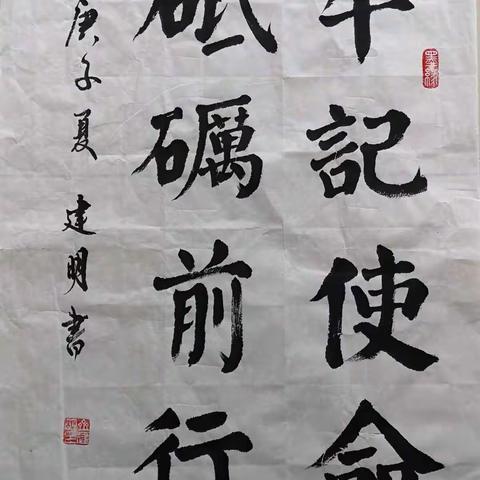 牢记使命
砥礪前行
庚子夏 建明書